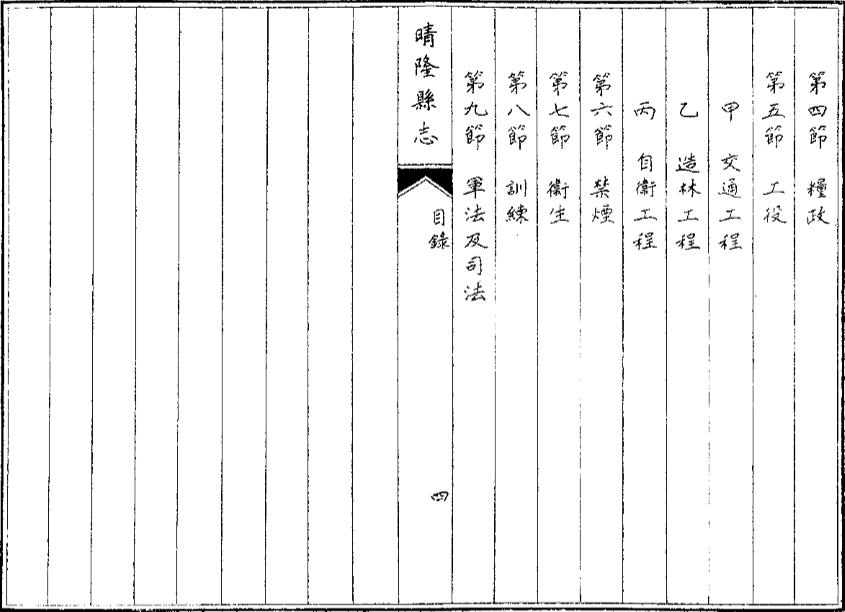 第四節　糧政
第五節　工役
甲　交通工程
乙　造林工程
丙　自衛工程
第六節　禁煙
第七節　衛生
第八節　訓練
第九節　軍法及司法
晴隆縣志
目錄
四